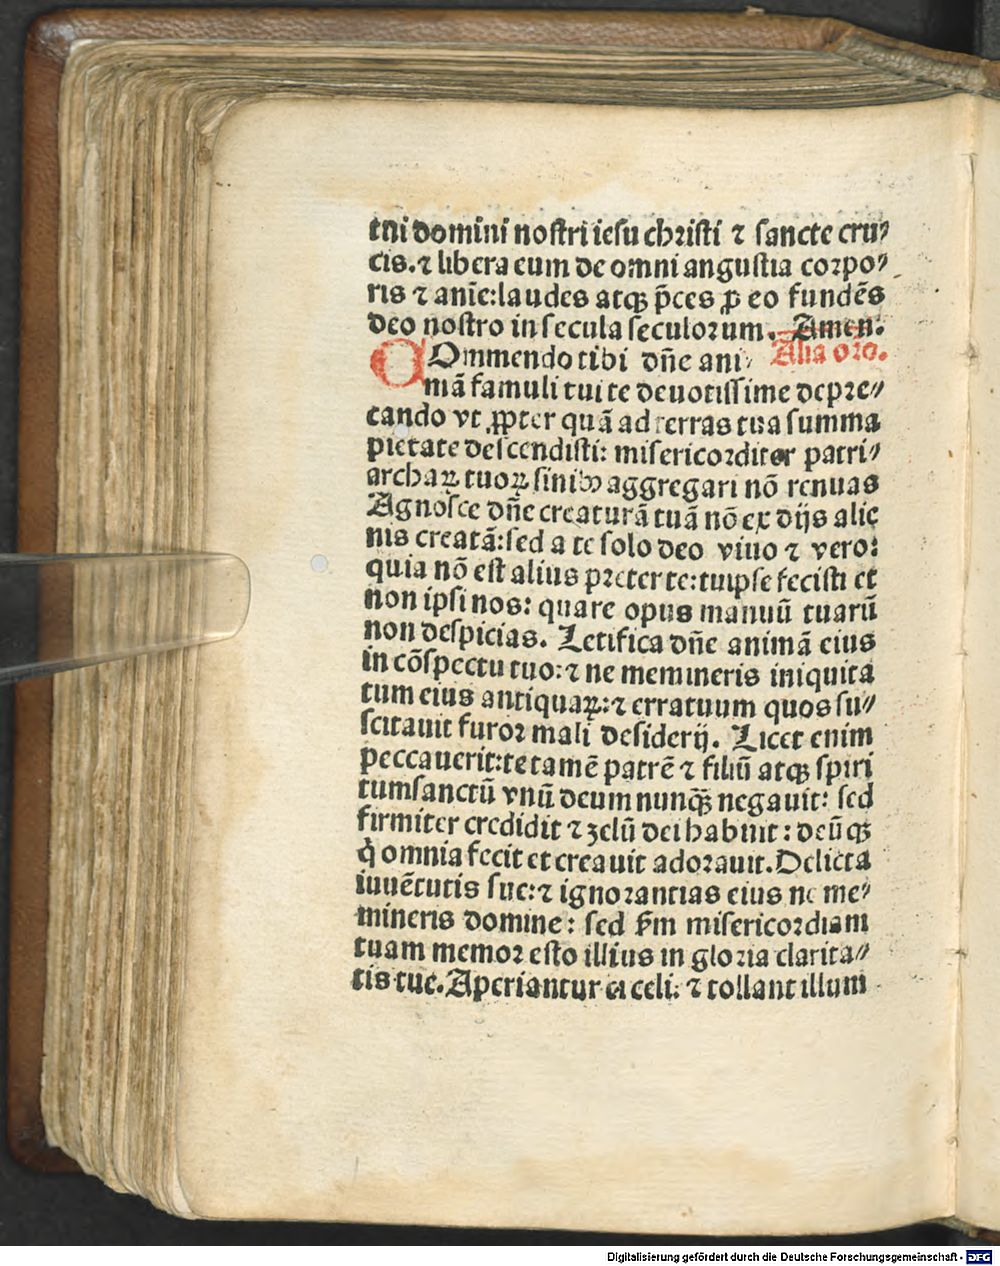 tni domini nostri iesu christi ⁊ sancte cru⸗
cis. ⁊ libera eum de omni angustia corpo⸗
ris ⁊ anīe: laudes atqꝫ p̄ces ꝓ eo fundēs
deo nostro in secula seculorum. Amen.
COmmendo tibi dn̄e ani⸗ Alia oro.
mā famuli tui te deuotissime depre⸗
cando vt ꝓpter quā ad terras tua summa
pietate descendisti: misericorditer patri⸗
archaꝝ tuoꝝ sinibꝰ aggregari nō renuas
Agnosce dn̄e creaturā tuā nō ex dijs alie
nis creatā: sed a te solo deo viuo ⁊ vero:
quia nō est alius preter te: tu ipse fecisti et
non ipsi nos: quare opus manuū tuarū
non despicias. Letifica dn̄e animā eius
in cōspectu tuo: ⁊ ne memineris iniquita
tum eius antiquaꝝ: ⁊ erratuum quos su⸗
scitauit furor mali desiderij. Licet enim
peccauerit: te tamē patrē ⁊ filiū atqꝫ spiri
tumsanctū vnū deum nunqꝫ̄ negauit: sed
firmiter credidit ⁊ zelū dei habuit: deūqꝫ
q̇ omnia fecit et creauit adorauit. Delicta
iuuētutis sue: ⁊ ignorantias eius ne me⸗
mineris domine: sed ẜm misericordiam
tuam memor esto illius in gloria clarita⸗
tis tue. Aperiantur ei celi: ⁊ tollant illum
Digitalisierung gefördert durch die Deutsche Forschungsgemeinschaft - DFG